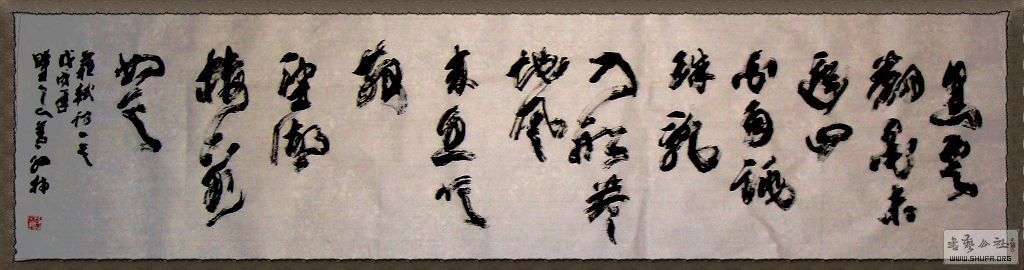 黑雲
翻墨未
遮山
白雨跳
珠亂
入船卷
地風
來忽吹
散
望湖
樓下水
如天
蘇軾詩一首
戊戌年
書藝公社
WWW.SHUFA.ORG